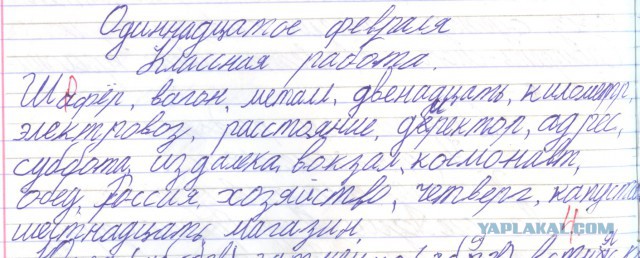 Одиннадцатое февраля
Классная работа.
Шофёр, вагон, металл, двенадцать, километр,
электровоз, расстояние, директор, адрес,
суббота, издалека, вокзал, космонавт,
обед, Россия, хозяйство, четверг, капуста
шестнадцать, магазин,
YAPLAKAL.COM